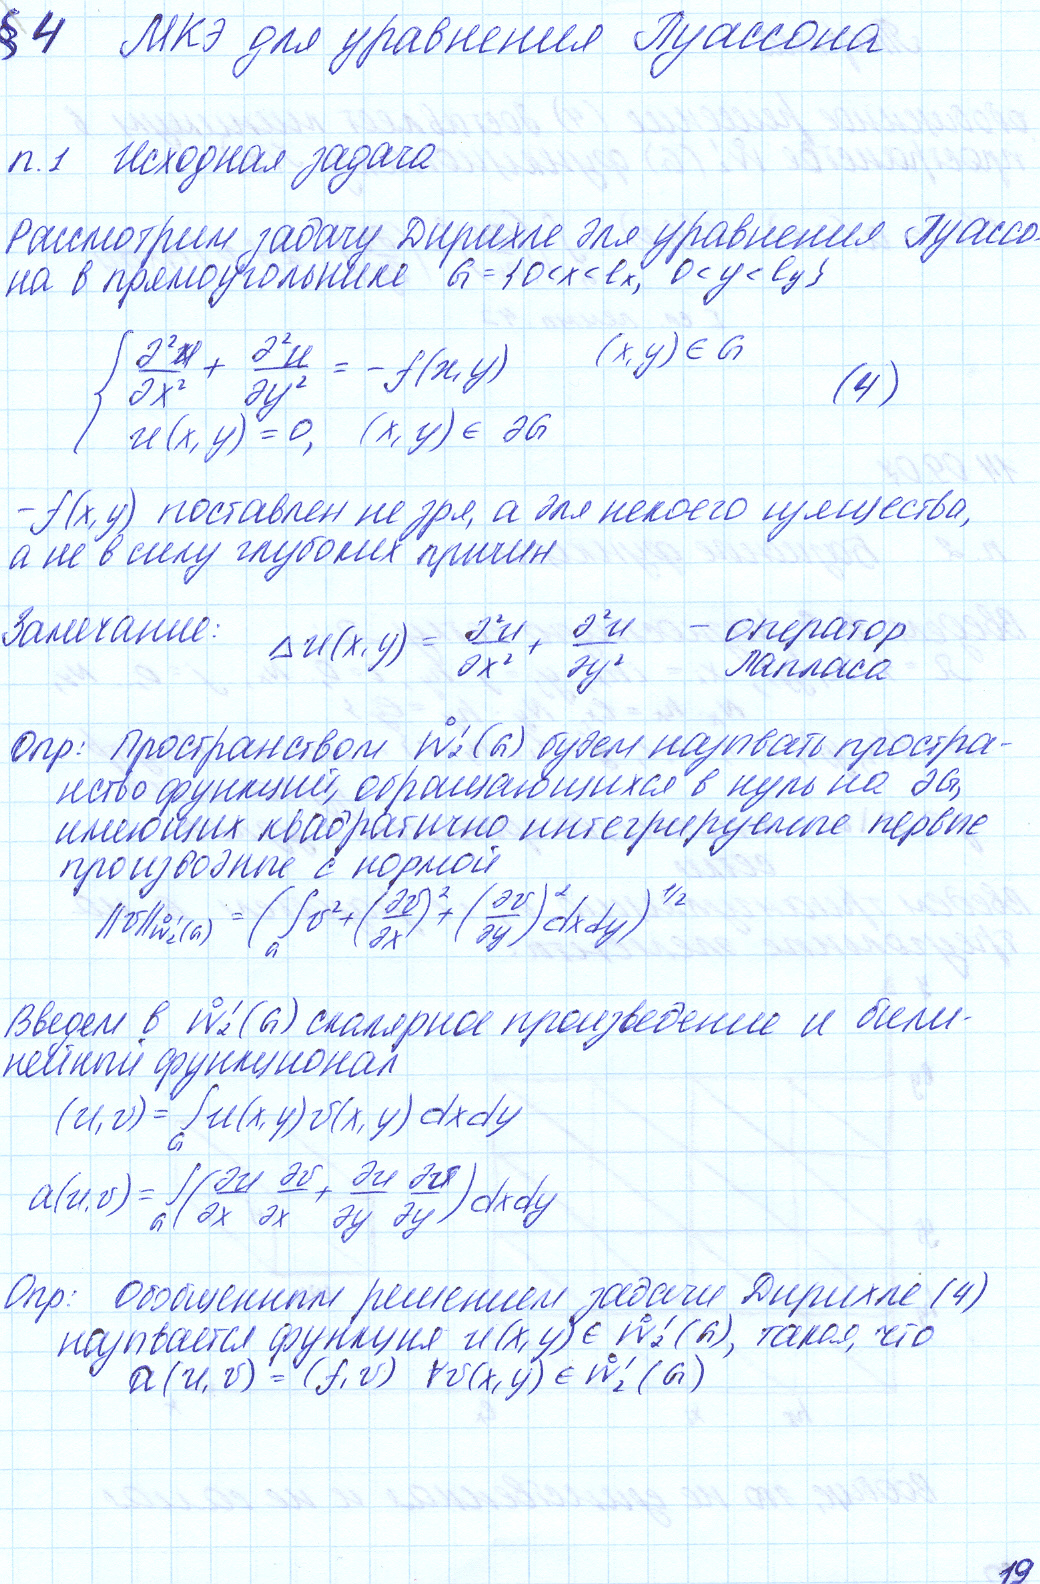 §4 МКЭ для уравнения Пуассона
п.1 Исходная задача
Рассмотрим задачу Дирихле для уравнения Пуассо-
на в прямоугольнике G = {0<x<lx, 0<y<ly}
∂²u/∂x² + ∂²u/∂y² = -f(x,y) (x,y) ∈ G
(4)
u(x,y) = 0, (x,y) ∈ ∂G
-f(x,y) поставлен не зря, а для некоего изящества,
а не в силу глубоких причин
Замечание: Δu(x,y) = ∂²u/∂x² + ∂²u/∂y² - оператор
Лапласа
Опр: Пространством W̊₂¹(G) будем называть простра-
нство функций, обращающихся в нуль на ∂G,
имеющих квадратично интегрируемые первые
производные с нормой
||v||W̊₂¹(G) = (∫G v² + (∂v/∂x)² + (∂v/∂y)² dxdy)^1/2
Введем в W̊₂¹(G) скалярное произведение и били-
нейный функционал
(u,v) = ∫G u(x,y) v(x,y) dxdy
a(u,v) = ∫G (∂u/∂x ∂v/∂x + ∂u/∂y ∂v/∂y) dxdy
Опр: Обобщенным решением задачи Дирихле (4)
называется функция u(x,y) ∈ W̊₂¹(G), такая, что
a(u,v) = (f,v) ∀v(x,y) ∈ W̊₂¹(G)
19